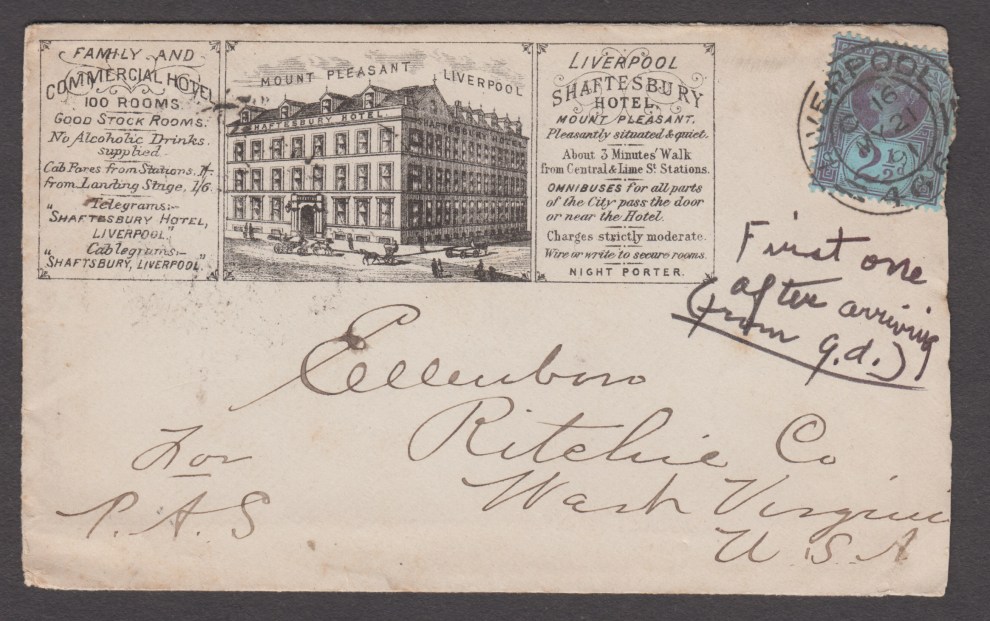 FAMILY AND
COMMERCIAL HOTEL
100 ROOMS
GOOD STOCK ROOMS.
No Alcoholic Drinks
supplied
Cab Fares from Stations, 1/-
from Landing Stage, 1/6.
Telegrams:-
"SHAFTESBURY HOTEL,
LIVERPOOL."
Cablegrams:-
"SHAFTSBURY, LIVERPOOL."
MOUNT PLEASANT LIVERPOOL
SHAFTESBURY HOTEL.
SHAFTESBURY HOTEL
LIVERPOOL
SHAFTESBURY
HOTEL,
MOUNT PLEASANT.
Pleasantly situated & quiet.
About 3 Minutes' Walk
from Central & Lime St Stations.
OMNIBUSES for all parts
of the City pass the door
or near the Hotel.
Charges strictly moderate.
Wire or write to secure rooms.
NIGHT PORTER.
LIVERPOOL
16
21
2½d
First one
after arriving
(from G.d.)
Ellenboro
Ritchie Co
West Virginia
U.S.A
For
P.A.S